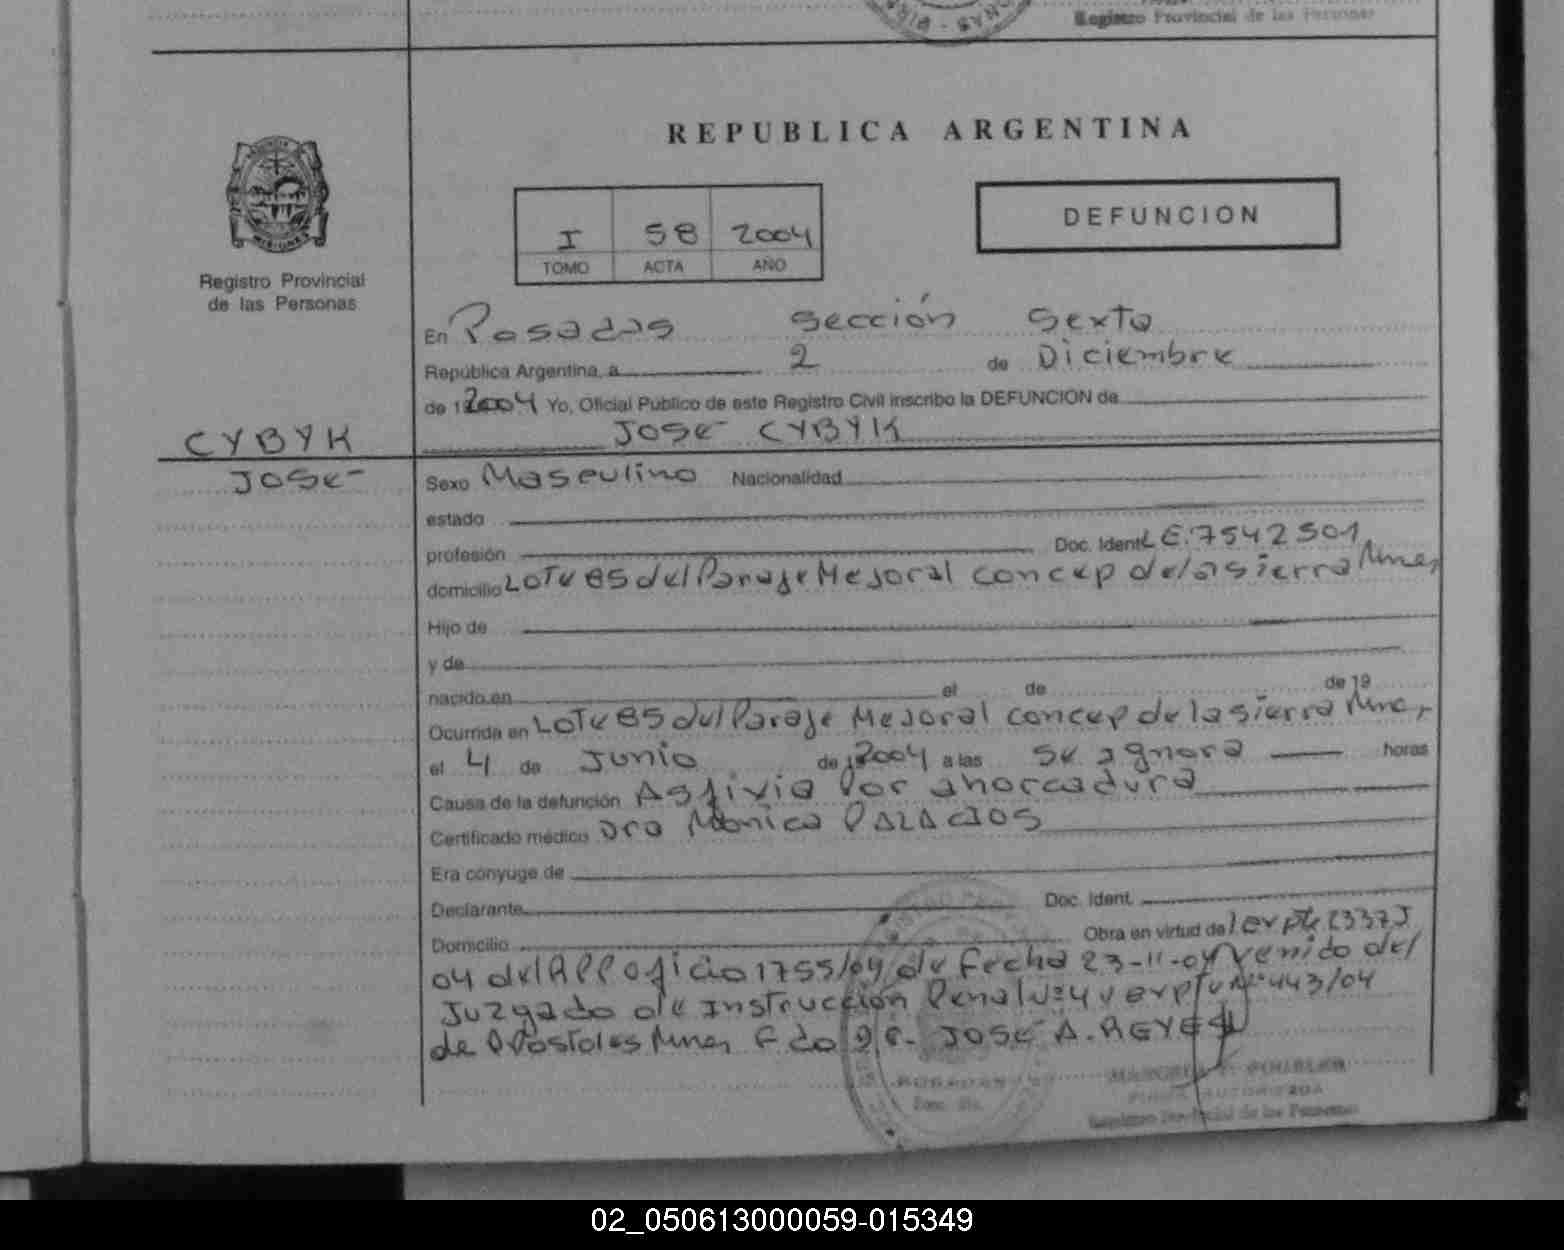 Registro Provincial de las Personas
REPUBLICA ARGENTINA
MISIONES
Registro Provincial
de las Personas
I 58 2004
TOMO ACTA AÑO
DEFUNCION
En Posadas Sección Sexta
República Argentina, a 2 de Diciembre
de 2004 Yo, Oficial Público de este Registro Civil inscribo la DEFUNCION de
JOSE CYBYK
CYBYK
JOSE
Sexo Masculino Nacionalidad
estado
profesión Doc. Ident. LE. 7542501
domicilio Lote 85 del Paraje Mejoral concep de la sierra Mnes
Hijo de
y de
nacido en el de de 19
Ocurrida en Lote 85 del Paraje Mejoral concep de la sierra Mnes
el 4 de Junio de 2004 a las se ignora horas
Causa de la defunción Asfixia Por ahorcadura
Certificado médico Dra Mónica PALACIOS
Era cónyuge de
Declarante Doc. Ident.
Domicilio Obra en virtud de 2337
04 del RPP oficio 1755/04 de Fecha 23-11-04 venido del
Juzgado de Instrucción Penal Nº4 expte Nº 443/04
de Apostoles Mnes Fdo Dr. JOSE A. REYES
POSADAS
FIRMA AUTORIZADA
Registro Provincial de las Personas
02_050613000059-015349